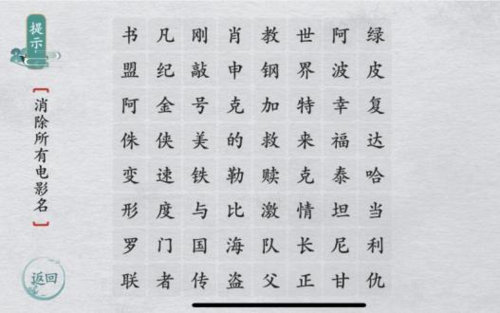 提示
消除所有电影名
返回
书凡刚肖教世阿绿
盟纪敲申钢界波皮
阿金号克加特幸复
侏侠美的救来福达
变速铁勒赎克泰哈
形度与比激情坦当
罗门国海队长尼利
联者传盗父正甘仇